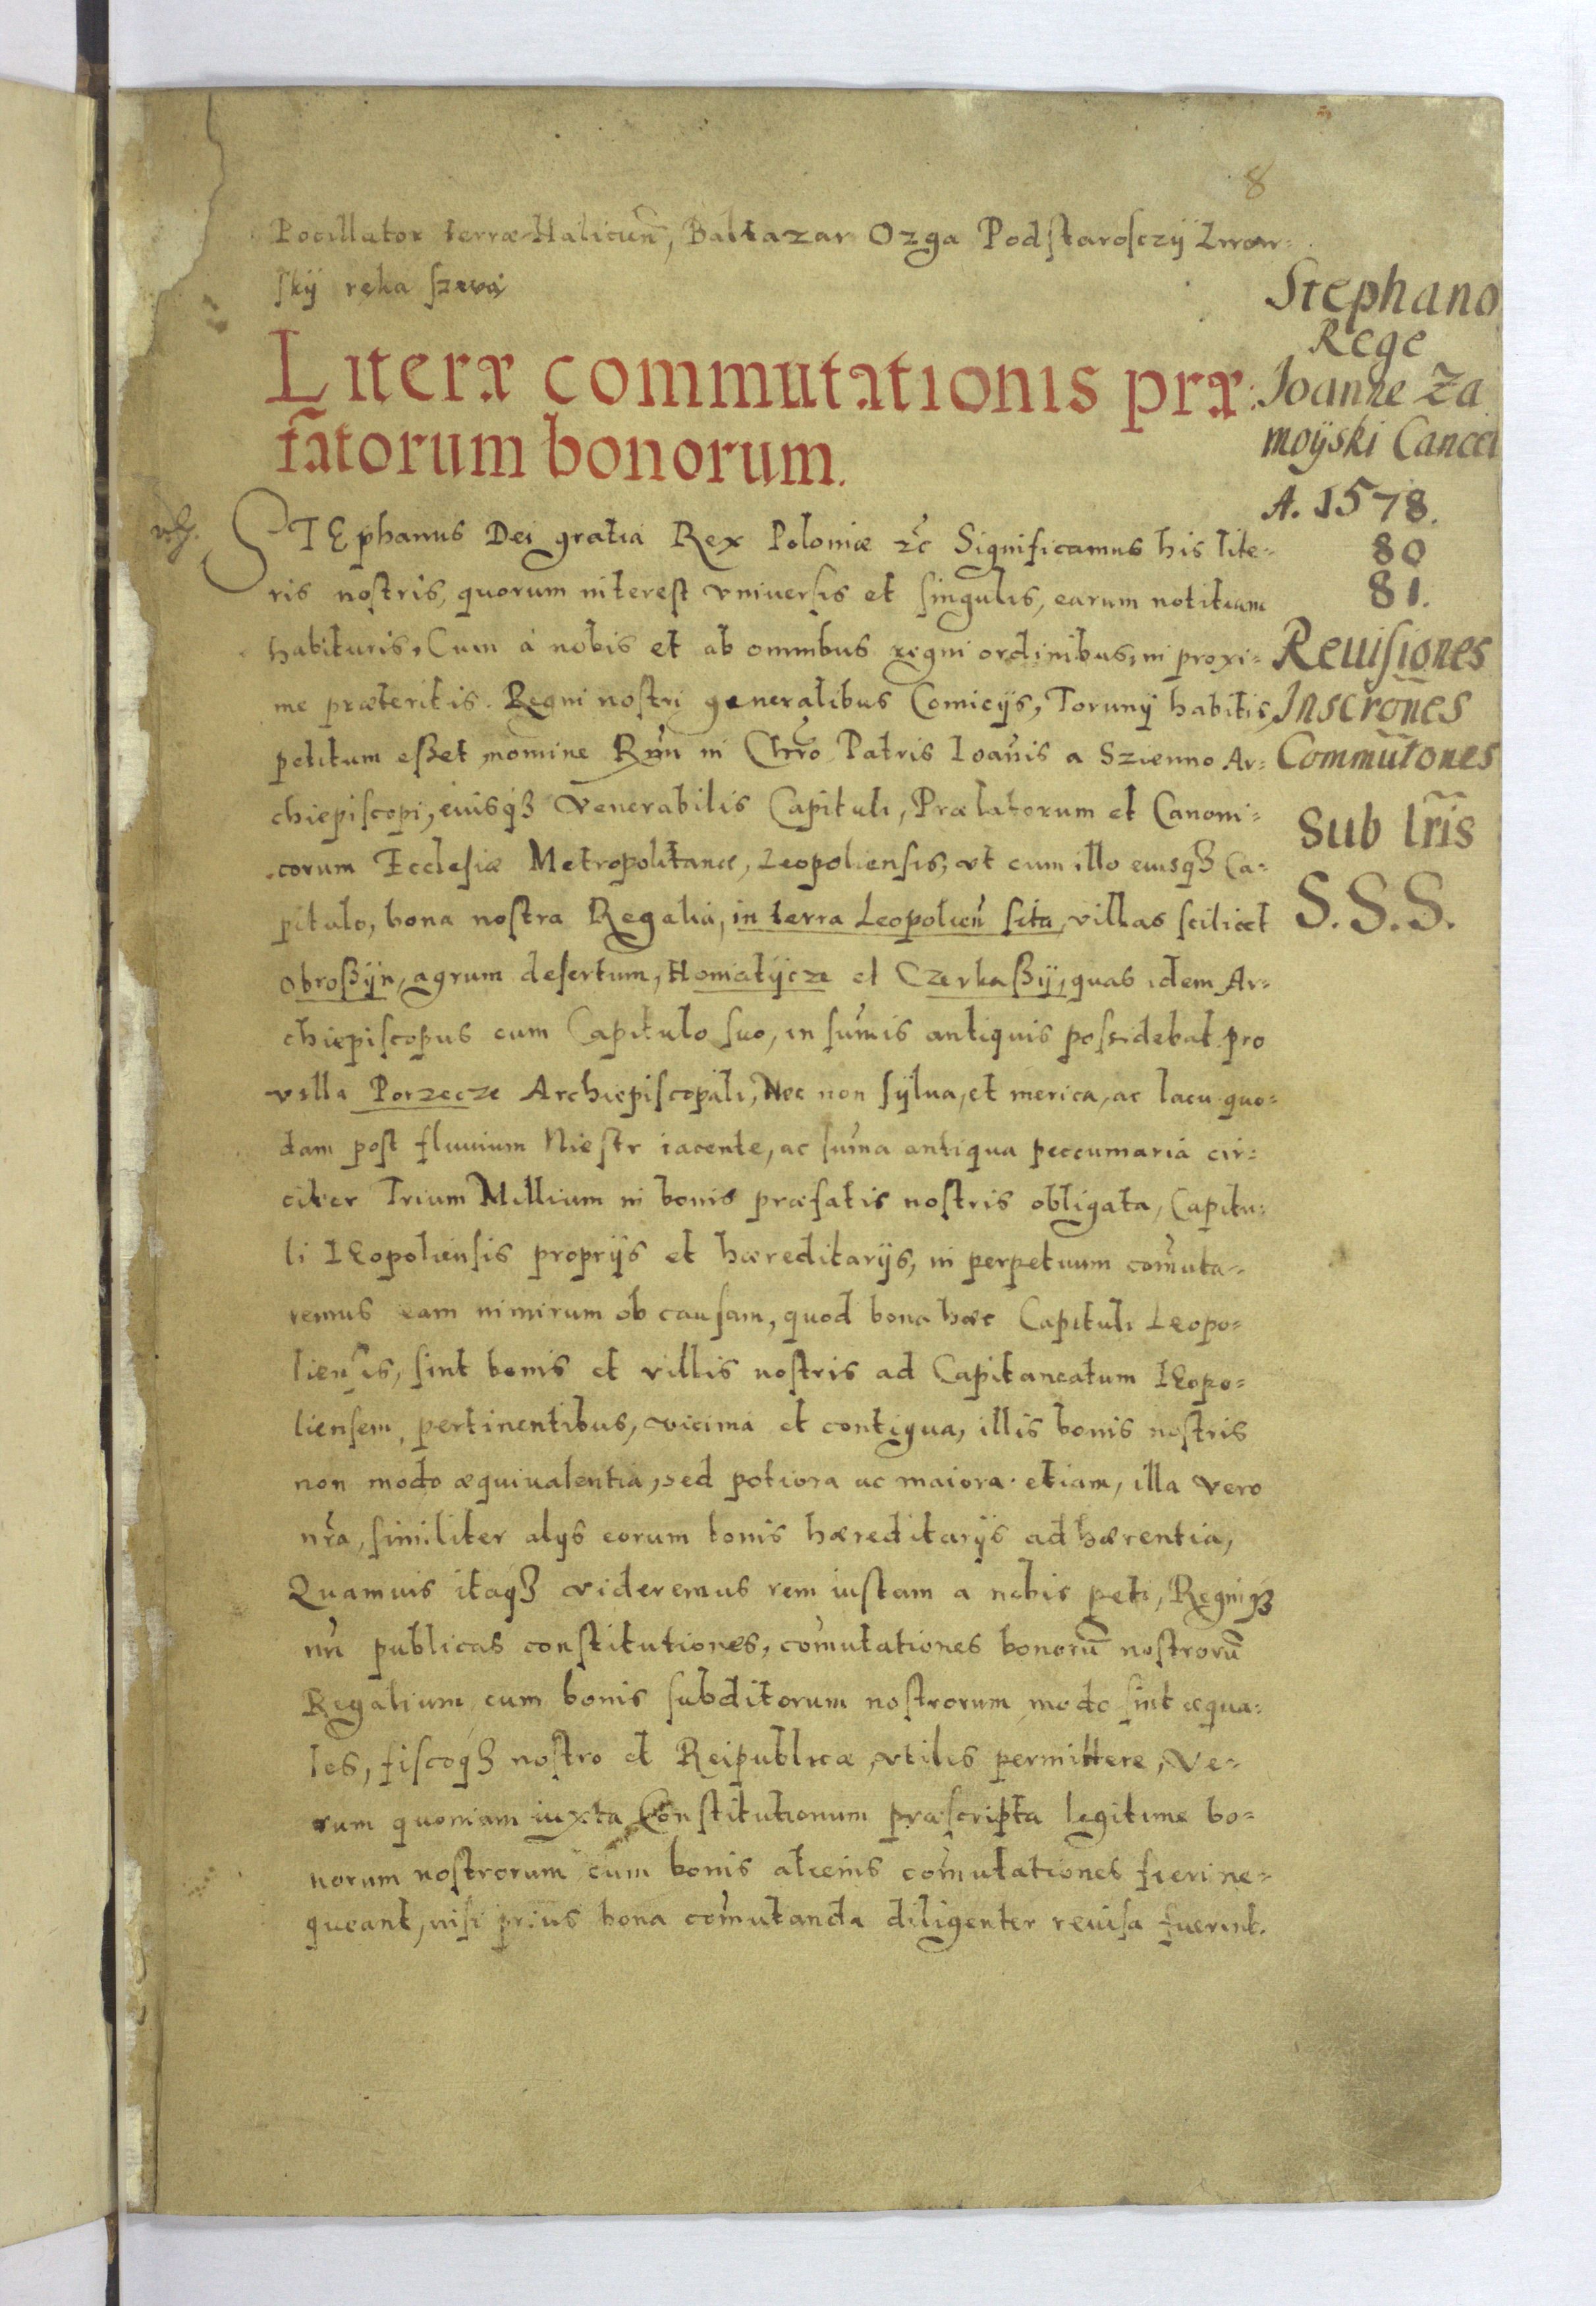 8
Pocillator terræ Halicien̄, Baltazar Ozga Podstarosczÿ Lwow=
skÿ ręka szwą
Literæ commutationis præ=
fātorum bonorum.
STEphanus Dei gratia Rex Poloniæ ꝛc̃ Significamus his lite=
ris nostris, quorum interest vniuersis et singulis, earum notitiam
habituris, Cum à nobis et ab omnibus regni ordinibus, in proxi=
me præteritis Regni nostri generalibus Comicÿs, Torunÿ habitis,
petitum eßet nomine Rm̃i in Chr̃o Patris Ioan̄is a Szienno Ar=
chiepiscopi, eiusqꝫ Venerabilis Capituli, Prælatorum et Canoni=
corum Ecclesiæ Metropolitanæ, Leopoliensis, vt cum illo eiusqꝫ Ca=
pitulo, bona nostra Regalia, in terra Leopolien̄ sita, villas scilicet
Obroßÿn, agrum desertum, Homiatÿcze et Czerkaßÿ, quas idem Ar=
chiepiscopus cum Capitulo suo, in sum̄is antiquis possidebat pro
villa Porzecze Archiepiscopali, Nec non sÿlua, et merica, ac lacu quo=
dam post fluuium Niestr iacente, ac sum̄a antiqua peccumaria cir=
citer Trium Millium in bonis præfatis nostris obligata, Capitu=
li LEopoliensis proprÿs et hæreditarÿs, in perpetuum com̄uta=
remus eam nimirum ob causam, quod bona hæc Capituli Leopo=
liensis, sint bonis et villis nostris ad Capitaneatum LEopo=
liensem pertinentibus, vicina et contigua, illis bonis nostris
non modo æquiualentia, sed potiora ac maiora etiam, illa vero
nr̃a, similiter alÿs eorum bonis hæreditarÿs adhærentia,
Quamuis itaqꝫ videremus rem iustam a nobis peti, Regniqꝫ
nr̃i publicas constitutiones, com̄utationes bonorū nostrorū
Regalium cum bonis subditorum nostrorum modo sint æqua=
les, fiscoqꝫ nostro et Reipublicæ vtiles permittere, Ve=
rum quoniam iuxta Constitutionum præscripta legitime bo=
norum nostrorum cum bonis alienis com̄utationes fieri ne=
queant, nisi prius bona com̄utanda diligenter reuisa fuerint.
Stephano
Rege
Joanne Za
moÿski Cancel
A. 1578.
80
81.
Reuisiones
Inscrōnes
Commutōnes
Sub lr̃is
S. S. S.